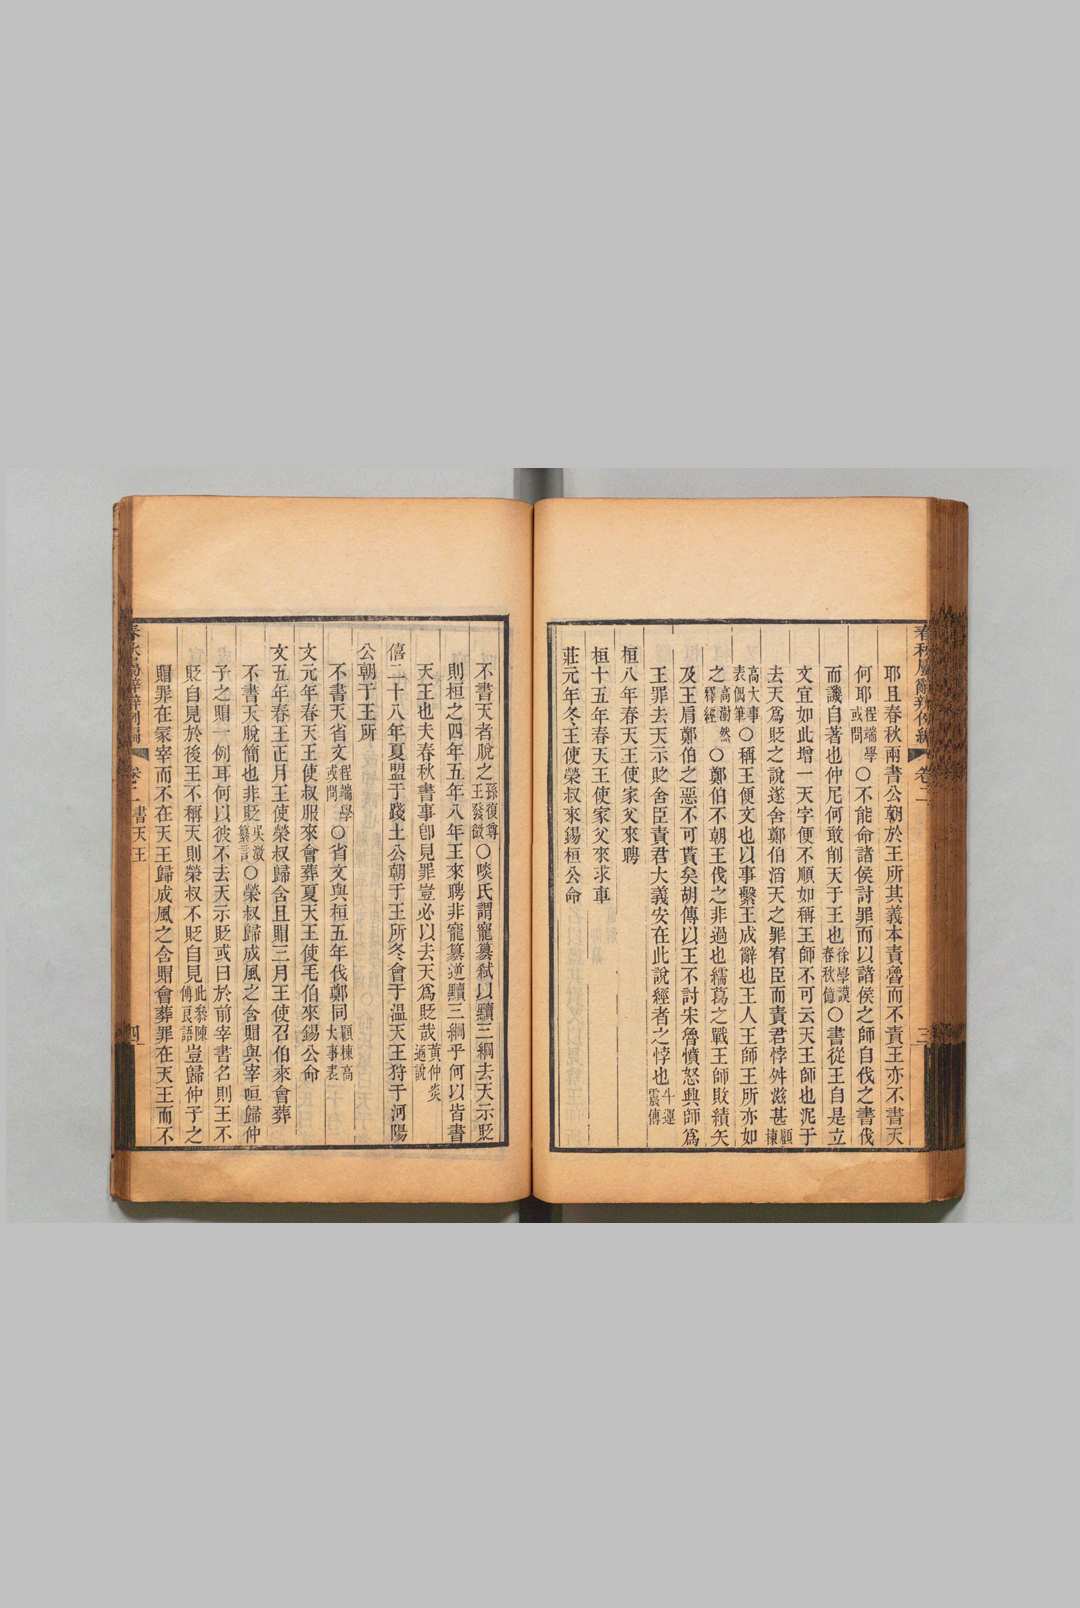 耶且春秋兩書公朝於王所其義本責魯而不責王亦不書天
何耶程端學或問〇不能命諸侯討罪而以諸侯之師自伐之書伐
而譏自著也仲尼何敢削天于王也徐學謨春秋億〇書從王自是立
文宜如此增一天字便不順如稱王師不可云天王師也泥于
去天爲貶之說遂舍鄭伯滔天之罪宥臣而責君悖舛滋甚顧棟
高大事表偶筆〇稱王便文也以事繫王成辭也王人王師王所亦如
之高澍然釋經〇鄭伯不朝王伐之非過也繻葛之戰王師敗績矢
及王肩鄭伯之惡不可貰矣胡傳以王不討宋魯憤怒興師爲
王罪去天示貶舍臣責君大義安在此說經者之悖也斗運震傳
桓八年春天王使家父來聘
桓十五年春天王使家父來求車
莊元年冬王使榮叔來錫桓公命
春秋屬辭辨例編 卷二 三
不書天者脫之孫復尊王發微〇啖氏謂寵簒弑以黷三綱去天示貶
則桓之四年五年八年王來聘非寵簒逆黷三綱乎何以皆書
天王也夫春秋書事卽見罪豈必以去天爲貶哉黃仲炎通說
僖二十八年夏盟于踐土公朝于王所冬會于溫天王狩于河陽
公朝于王所
不書天省文程端學或問〇省文與桓五年伐鄭同顧棟高大事表
文元年春天王使叔服來會葬夏天王使毛伯來錫公命
文五年春王正月王使榮叔歸含且賵三月王使召伯來會葬
不書天脫簡也非貶吳澂纂言〇榮叔歸成風之含賵與宰咺歸仲
子之賵一例耳何以彼不去天示貶或曰於前宰書名則王不
貶自見於後王不稱天則榮叔不貶自見此黎陳傅良語豈歸仲子之
賵罪在冢宰而不在天王歸成風之含賵會葬罪在天王而不
春秋屬辭辨例編 卷二 書天王 四